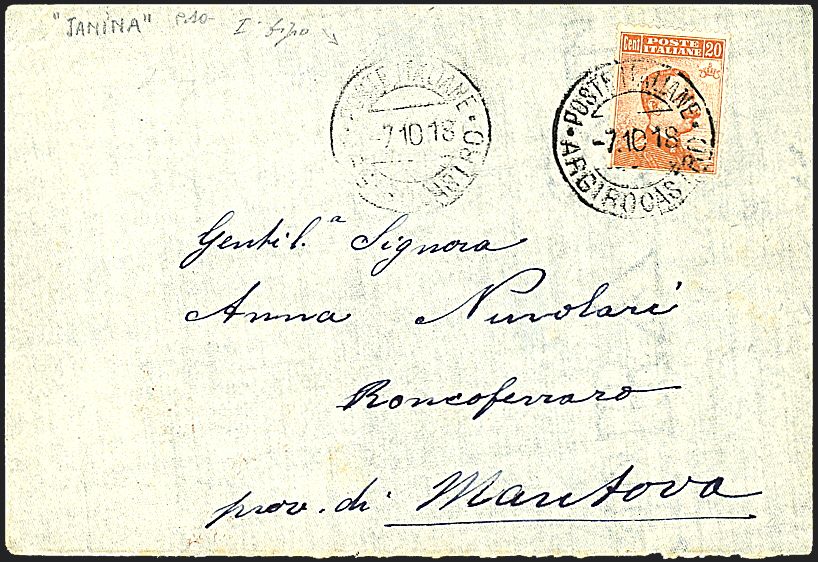 "JANINA" I° tipo
Cent POSTE ITALIANE 20
POSTE ITALIANE
-7.10.18
ARGIROCASTRO
POSTE ITALIANE
-7.10.18
Gentil.ª Signora
Anna Nuvolari
Roncoferraro
prov. di Mantova